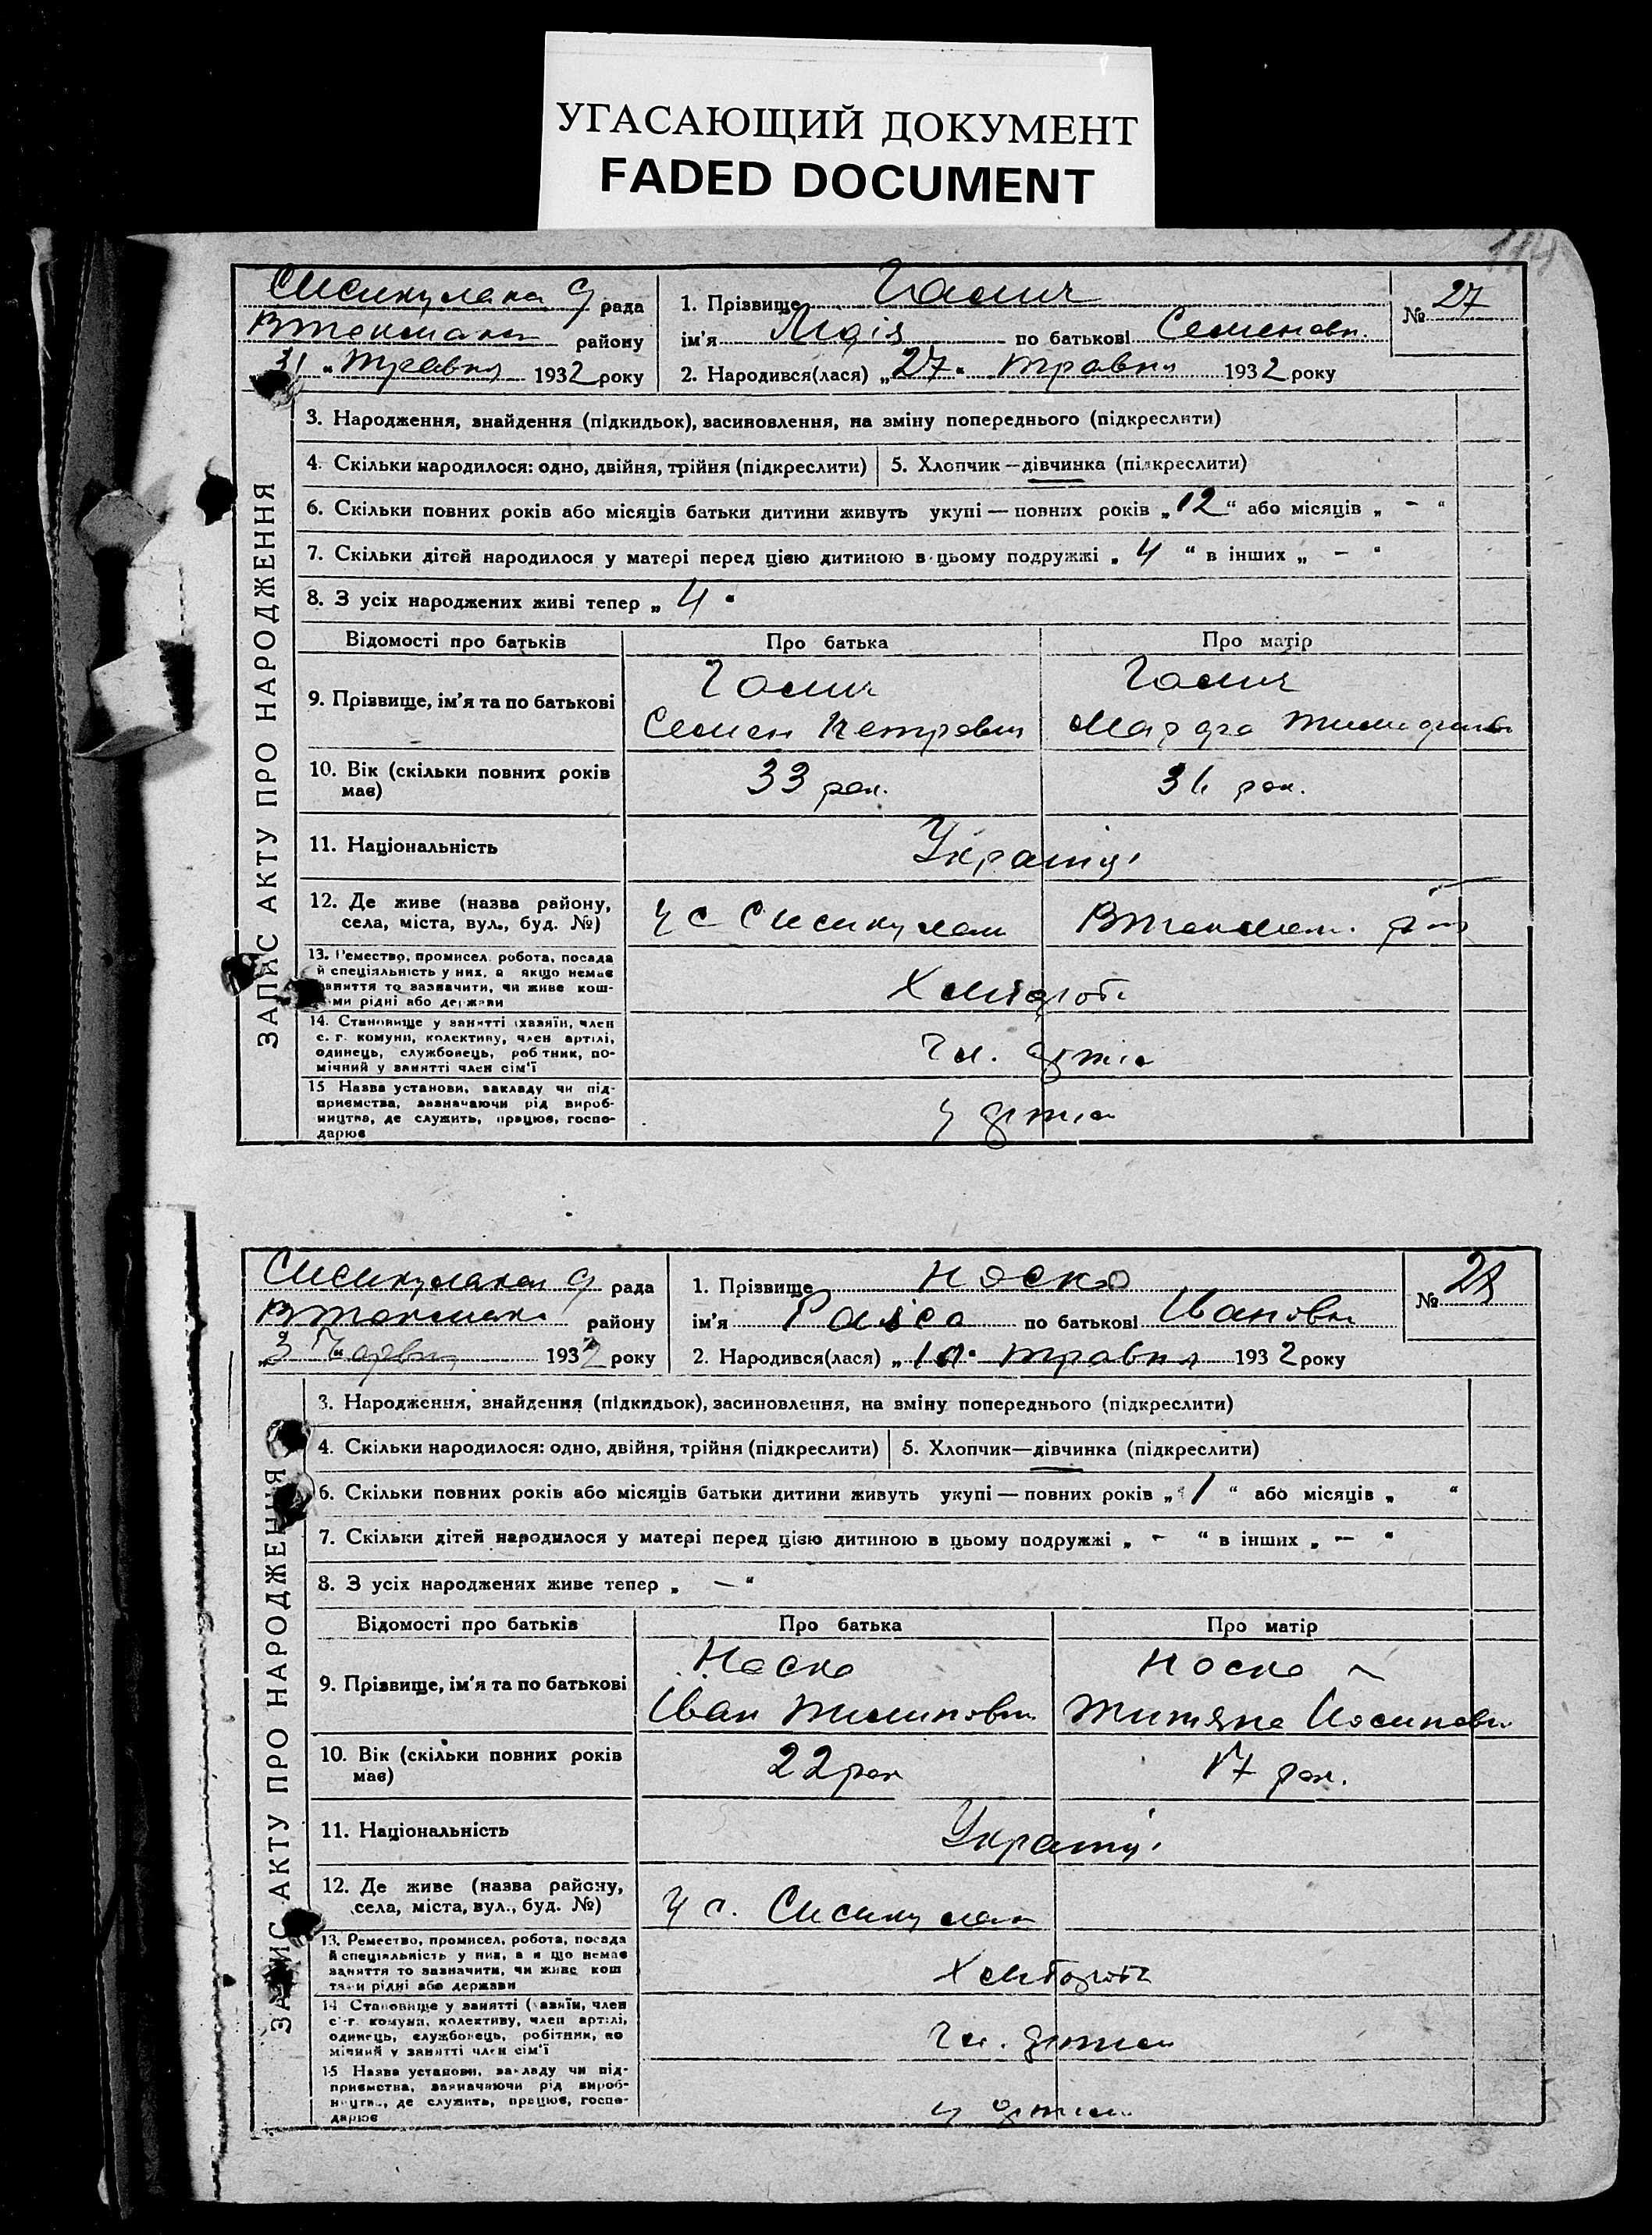 УГАСАЮЩИЙ ДОКУМЕНТ
FADED DOCUMENT
рада
1. Прізвище Галич
№ 27
району
ім'я Лідія по батькові Семеновн.
31 " травня 1932 року
2. Народився(лася) „27" травня 1932 року
ЗАПИС АКТУ ПРО НАРОДЖЕННЯ
3. Народження, знайдення (підкидьок), засиновлення, на зміну попереднього (підкреслити)
4. Скільки народилося: одно, двійня, трійня (підкреслити)
5. Хлопчик—дівчинка (підкреслити)
6. Скільки повних років або місяців батьки дитини живуть укупі — повних років „12" або місяців „ - "
7. Скільки дітей народилося у матері перед цією дитиною в цьому подружжі „ 4 " в інших „ - "
8. З усіх народжених живі тепер „ 4 "
Відомості про батьків
Про батька
Про матір
9. Прізвище, ім'я та по батькові
Галич
Семен Петрович
Галич
10. Вік (скільки повних років
має)
33 рок.
рок.
11. Національність
Україці
12. Де живе (назва району,
села, міста, вул., буд. №)
у с
13. Ремество, промисел, робота, посада
й спеціяльність у них, а якщо немає
заняття то зазначити, чи живе кош-
ми рідні або держави
Хлібороб
14. Становище у занятті (хазяїн, член
с. г. комуни, колективу, член артілі,
одинець, службовець, робітник, по-
мічний у занятті член сім'ї
Чл. артіл
15 Назва установи, закладу чи під-
приємства, зазначаючи рід вироб-
ництва, де служить, працює, госпо-
дарює
у артіл
рада
1. Прізвище Носко
№ 28
району
ім'я Раїса по батькові Івановн
„3 Червня 1932 року
2. Народився(лася) травня 1932 року
ЗАПИС АКТУ ПРО НАРОДЖЕННЯ
3. Народження, знайдення (підкидьок), засиновлення, на зміну попереднього (підкреслити)
4. Скільки народилося: одно, двійня, трійня (підкреслити)
5. Хлопчик—дівчинка (підкреслити)
6. Скільки повних років або місяців батьки дитини живуть укупі — повних років „ 1 " або місяців „ "
7. Скільки дітей народилося у матері перед цією дитиною в цьому подружжі „ - " в інших „ - "
8. З усіх народжених живе тепер „ - "
Відомості про батьків
Про батька
Про матір
9. Прізвище, ім'я та по батькові
Носко
Іван
Носко
10. Вік (скільки повних років
має)
22 рок
17 рок.
11. Національність
Україці
12. Де живе (назва району,
села, міста, вул., буд. №)
у с.
13. Ремество, промисел, робота, посада
й спеціяльність у них, а якщо немає
заняття то зазначити, чи живе кош
тами рідні або держави
Хлібороб
14 Становище у занятті (хазяїн, член
с.-г. комуни, колективу, член артілі,
одинець, службовець, робітник, по
мічний у занятті член сім'ї
Чл. артіл
15 Назва установи, закладу чи під-
приємства, зазначаючи рід вироб-
ництва, де служить, працює, госпо-
дарює
у артіл